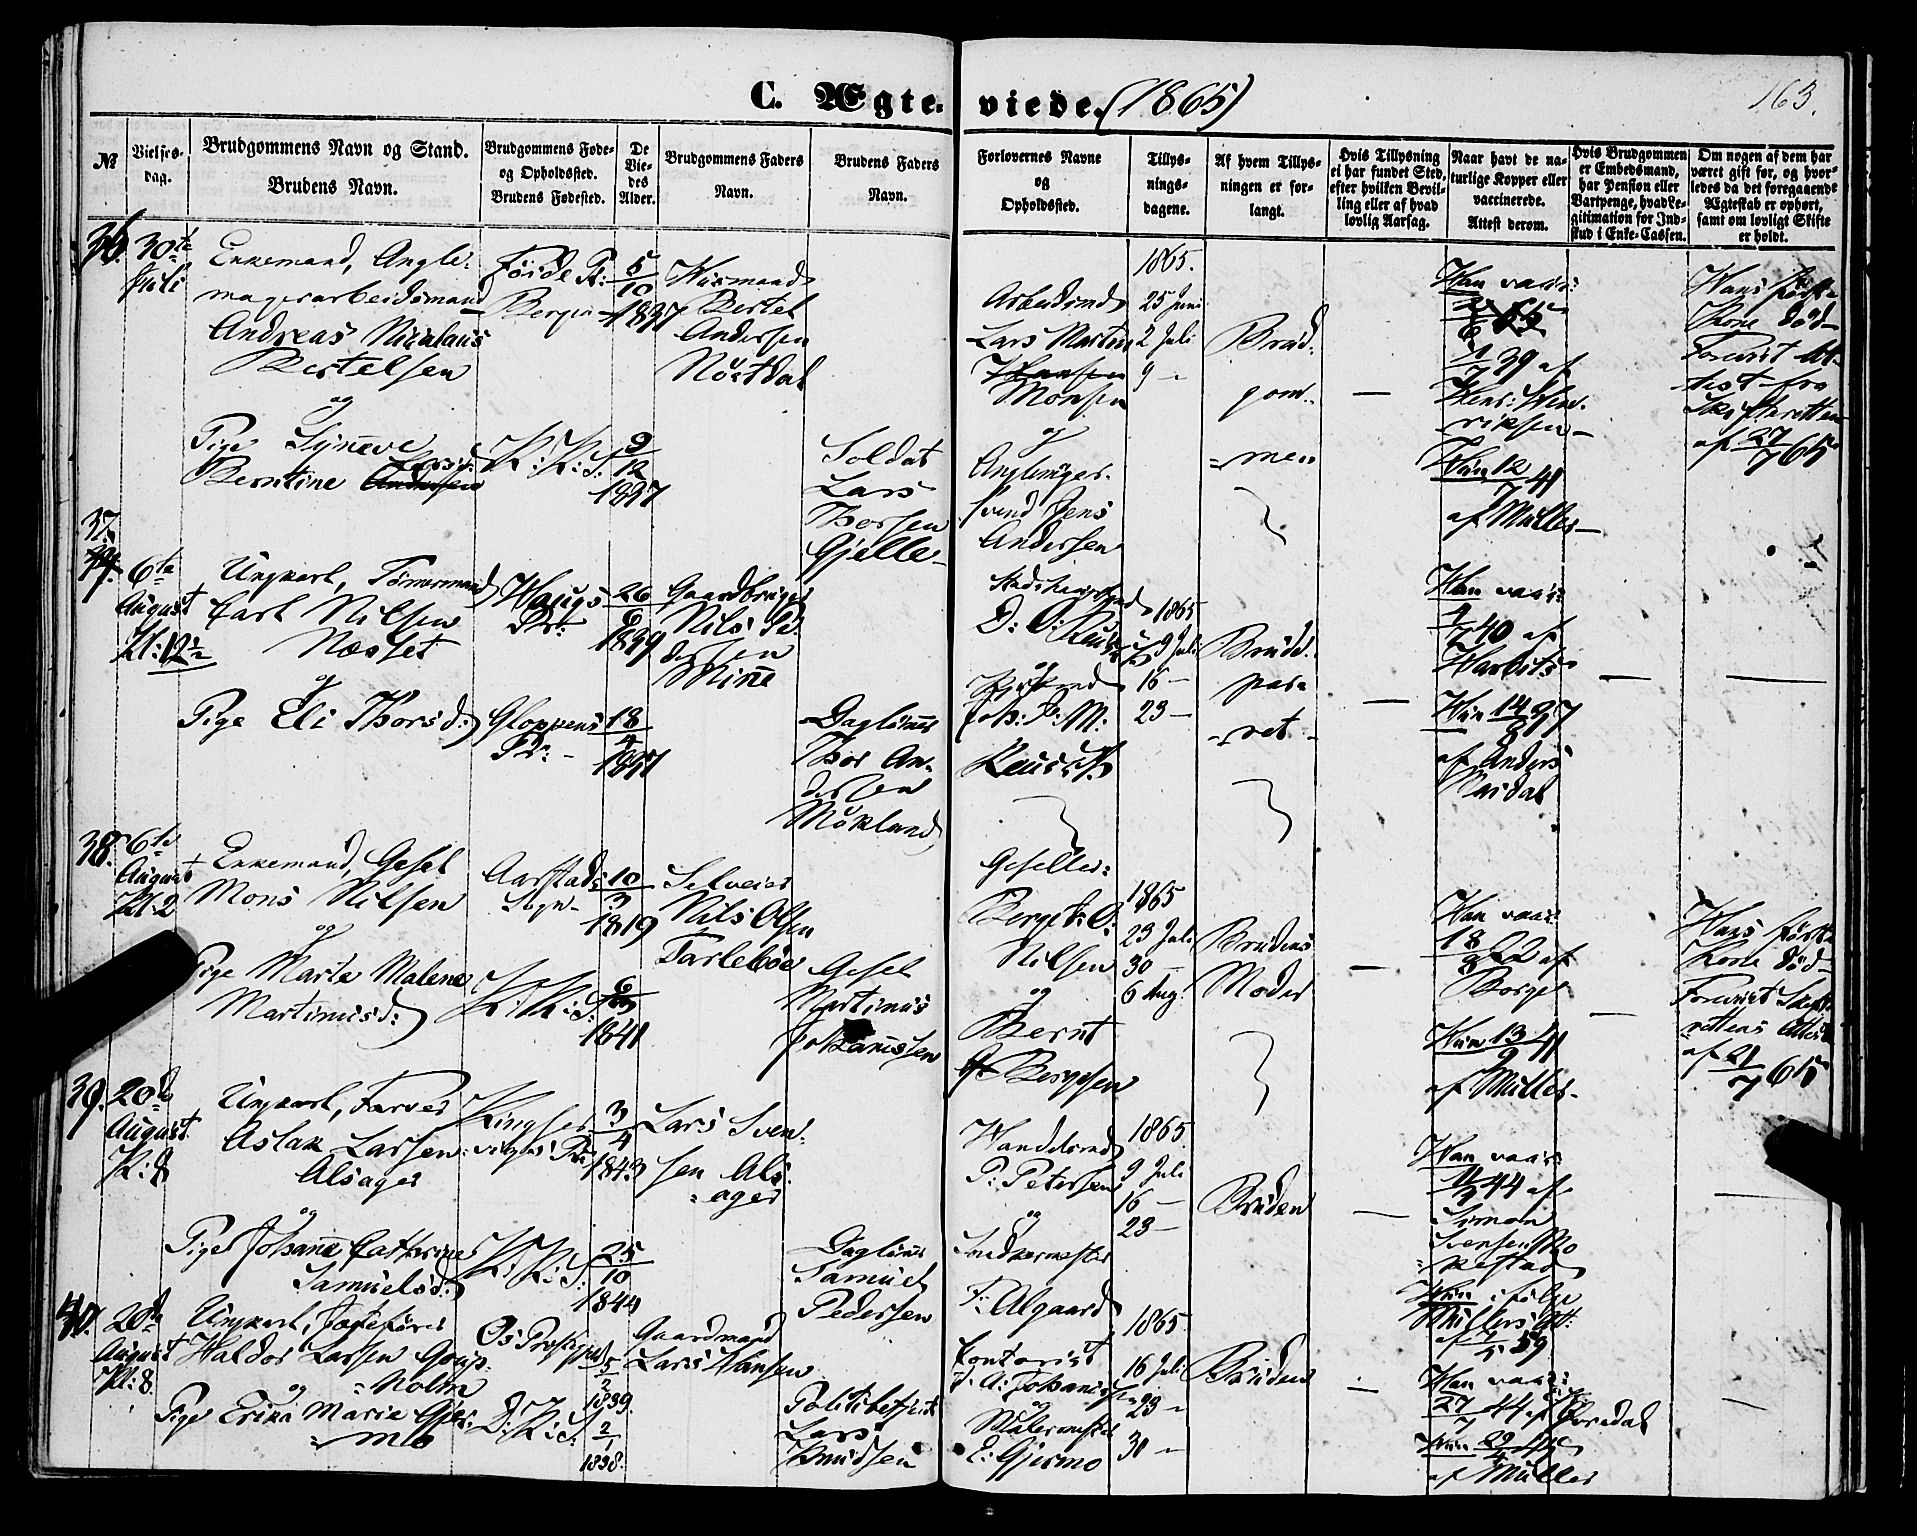 C. Ægteviede. (1865)
163.
№
Vielses-
dag.
Brudgommens Navn og Stand.
Brudens Navn.
Brudgommens Føde-
og Opholdssted.
Brudens Fødested.
De
Vie-
des
Alder.
Brudgommens Faders
Navn.
Brudens Faders
Navn.
Forlovernes Navne
og
Opholdssted.
Tillys-
nings-
dagene.
Af hvem Tillys-
ningen er for-
langt.
Hvis Tillysning
ei har fundet Sted,
efter hvilken Bevil-
ling eller af hvad
lovlig Aarsag.
Naar havt de na-
turlige Kopper eller
vaccinerede.
Attest derom.
Hvis Brudgommen
er Embedsmand,
har Pension eller
Vartpenge, hvad Le-
gitimation for Ind-
skud i Enke-Cassen.
Om nogen af dem har
været gift før, og hvor-
ledes da det foregaaende
Ægteskab er ophørt,
samt om lovligt Skifte
er holdt.
36.
30te
Juli
Enkemand,
Andreas Nicolaus
Bertelsen
og
Pige Synneve
Berntine
Førde Pr:
Bergen
5/10
1837
K: K: S:
9/12
1837
Huusmand
Bertel
Andersen
Nøstdal
Soldat
Lars
Thorsen
Gjelle
Arbeidsmd
Lars Martin
Monsen
og
Svend Jens
Andersen
1865.
25 Juni
2 Juli
9 "
Brud-
gom-
men
Han vacc:
1/7 39 af
Hen-
riksen
Hun 12/7 41
af Müller
Hans første
Kone død
Foreviist At-
test fra
Skifteretten
af 27/7 65
37.
6te
August
Kl: 12½
Ungkarl, Tømmermand
Carl Nilsen
Næsset
og
Pige Eli Thorsd:
Haugs
Pr:
26/6
1839
Gloppens
Pr:
18/4
1837
Gaardbruger
Nils Pe-
dersen
Mine
Dagløner
Thor An-
dersen
Mökland
og
Joh: M:
1865
9 Juli
16 -
23 -
Brude-
pa-
ret
Han vacc:
1/7 40 af
Hun 14/8 37
af Anders
38.
6te
August
Kl: 2
Enkemand, Gesel
Mons Nilsen
og
Pige Marte Malene
Martinusd:
Aarstad
Sogn
10/3
1819
K: K: S:
1841
Selveier
Nils Olsen
Farlebøe
Gesel
Martinus
Johannssen
Geseller:
Berge O.
Nilsen
og
Bernt
Bergesen
1865
23 Juli
30 -
6 Aug.
Brudens
Moder
Han vacc:
18/8 22 af
Borge
Hun 13/9 41
af Müller
Hans første
Kone død
Foreviist Skifte-
rettens Attest
af 21/7 65
39.
20de
August
Kl: 8
Ungkarl, Farver
Aslak Larsen
Alsager
og
Pige Johanne Cathrine
Samuelsd:
Kingser-
vigs Pr:
3/4
1843
K: K: S:
25/10
1844
Lars Sven-
sen Als-
ager
Dagløner
Samuel
Pedersen
Handelsmd
P: Petersen
og
Snedkermester
F: Algaard
1865
9 Juli
16 -
23 -
Bruden
Han vacc:
11/9 44 af
Simon
Svensen Mo
Hun ifølge
Müllers Att:
af 7/5 59
40.
20de
August
Kl: 8
Ungkarl,
Haldor Larsen
Holm
og
Pige Erika Marie Gjer-
mo
Os Præstegjeld
5/2
1839.
D: K: S:
2/1
1838.
Gaardmand
Lars Hansen
Politibetjent
Lars
Knudsen
Contorist
J. A: Johannesen
og
Malermester
E: Gjermo
1865
16 Juli
23 "
30 "
Bruden
Han vacc:
27/7 44 af
af Müller